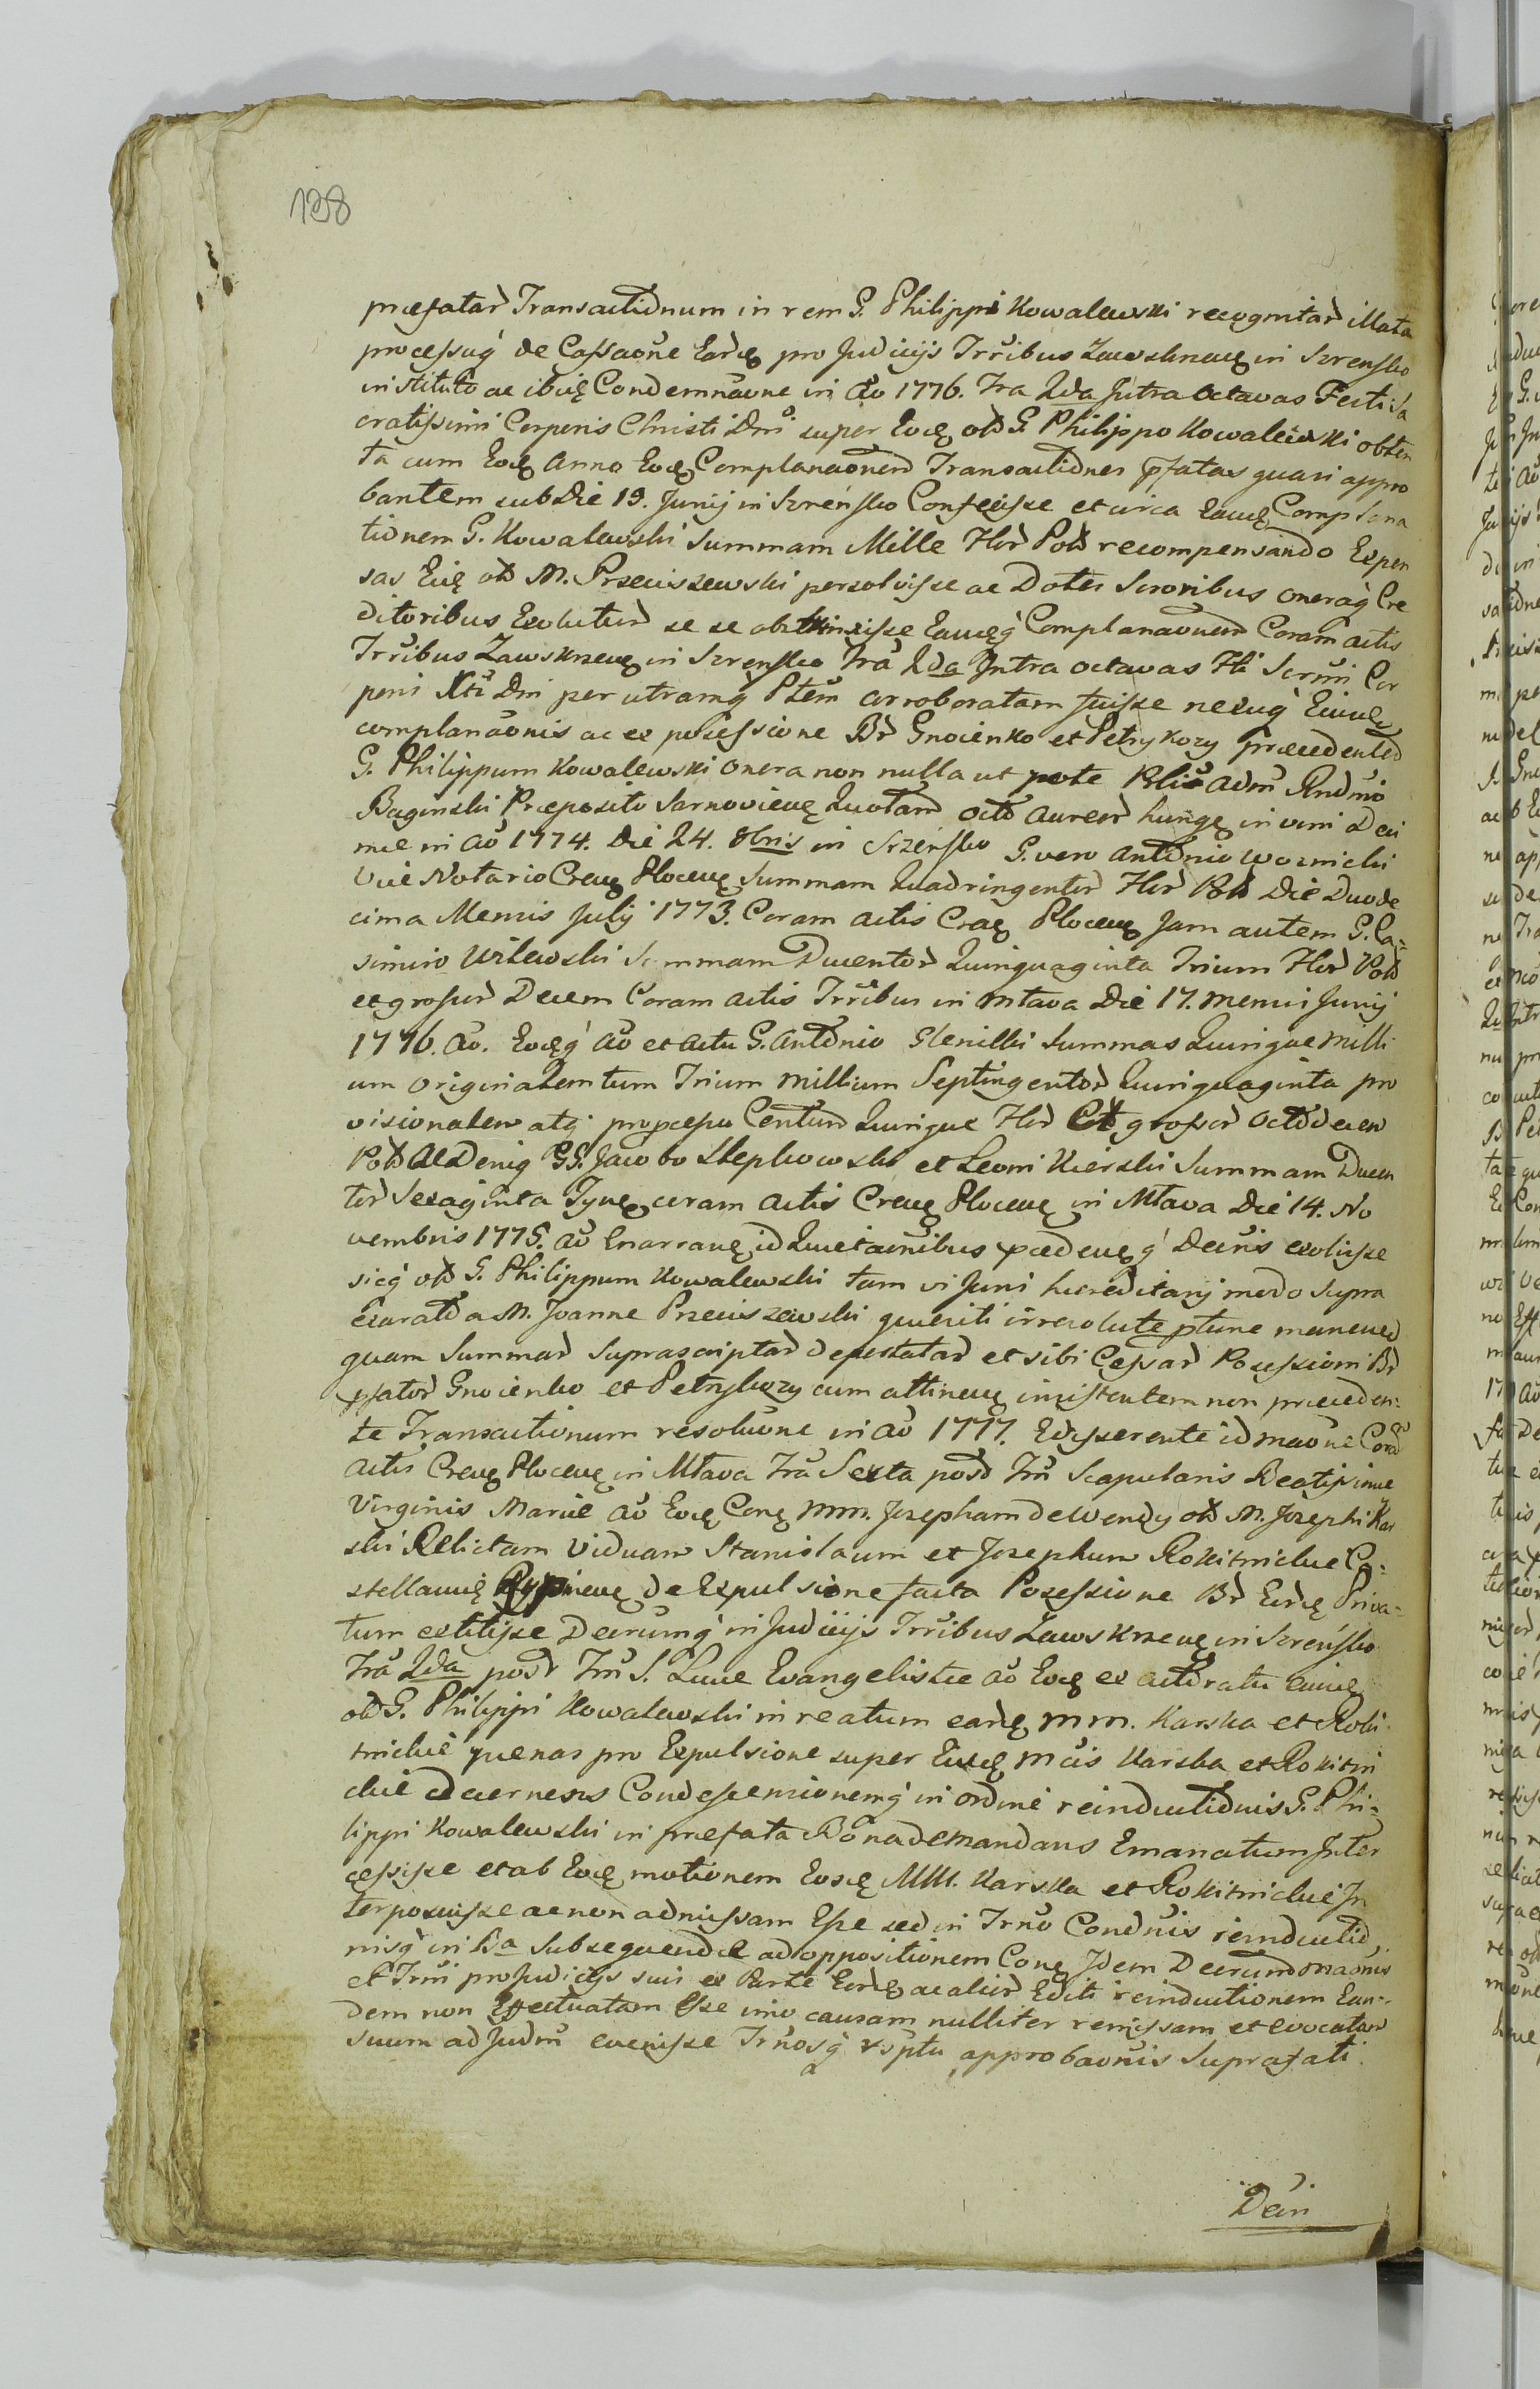 138
præfatar Transactionum in rem G. Philippi Kowalewski recognitar illata
processuq de Cassaõne Eard pro Judicijs Trribus Zawskrzen in Szrensko
instituto ac ibid Condemnãone in Aõ 1776. Fra 2da Intra octavas Festi Sa
cratissimi Corporis Christi Dni super Eod ob G. Philippo Kowalewski obten
ta cum Eod Anno Eod Complanaonem Transactiones pfatas quasi appro
bantem sub Die 19. Junij in Szreńsko Confecisse et circa Eand Complana
tionem G. Kowalewski Summam Mille Flor Pol recompensando Expen
sas Eid ob M. Przeciszewski persolvisse ac Dotes Sororibus oneraq Cre
ditoribus se se obstrinxisse Eandq Complanaonem Coram actis
Trribus Zawskrzen in Szrensko Fra 2da Intra octavas Fti Scrmi Cor
poris Xti Dni per utramq Ptem corroboratam fuisse nexuq Eiusd
complanaonis ac ex possessione Br Gnocienko et Petrykozy præcedente
G. Philippum Kowalewski onera non nulla ut pote Adm Rndmo
Baginski Præposito Sarnovien octo Aureor hung in vim Deci
mæ in Aõ 1774. Die 24. 8bris in Szreńsko G. vero Antonio Woznicki
Vice Notario Cren Plocen Summam Quadringentor Flor Pol Die Duode
cima Mensis Julij 1773. Coram actis Plocen Jam autem G. Ca-
simiro Summam Ducentor Quinquaginta Trium Flor Pol
et grossor Decem Coram actis Trribus in Mlava Die 17. mensis Junij
1776. Aõ. Eodq Aõ et actu G. Antonio Glenicki Summas Quinque milli
um originalem tum Trium millium Septingentor Quinquaginta pro
visionalem atq processu Centum Quinque Flor grossor octodecem
Pol Ac Deniq GG. Jacobo Slepkowski et Leoni Kierski Summam Ducen
tor Sexaginta coram Actis Cren Plocen in Mlava Die 14. No
vembris 1775. Aõ id Quietaonibus exolvisse
sicq ob G. Philippum Kowalewski tam vi Juris hæreditarij modo supra
Exarato a M. Joanne Przeciszewski quæsiti irresolute ptune manen
quam Summar Suprascriptar et sibi Cessar Possessioni Br
pfator Gnocienko et Petrykozy cum attinen insistentem non præceden-
te Transactionum resoluone in Aõ 1777. id maone Cora
Actis Cren Plocen in Mlava Fra Sexta post Ftu Scapularis Beatissimæ
Virginis Mariæ Aõ Eod MM. Josepham de Wendy ob M. Josephi Kar
ski Relictam Viduam Stanislaum et Josephum Rokitnickie Ca-
stellan Rypinen de Expulsione facta Possessione Br Eord Priva-
tum extitisse Decrumq in Judicijs Trribus Zawskrzen in Szreńsko
Fra 2da post Ftu S. Lucæ Evangelistæ Aõ Eod ex actoratu eiusd
ob G. Philippi Kowalewski in reatum eard MM. Karska et Roki-
tnickie pœnas pro Expulsione super MM. Karska et Rokitni
ckie decernens Condescensionemq in ordine reinductionis G. Phi-
lippi Kowalewski in præfata Bona demandans Emanatum Inter
cessisse et ab Eod motionem MM. Karska et Rokitnickie In
terposuisse ac non admissam Esse sed in Trno Condnis reinductio
nisq in Ba Subsequende ad oppositionem Idem Decrum
et Trni pro Judicijs suis ex Parte Eord ac alior Editi reinductionem Ean-
dem non Effectuatam Esse imo causam nulliter remissam et evocatam
suum ad Judm evenisse Trnosq approbaonis Suprafati
Dein